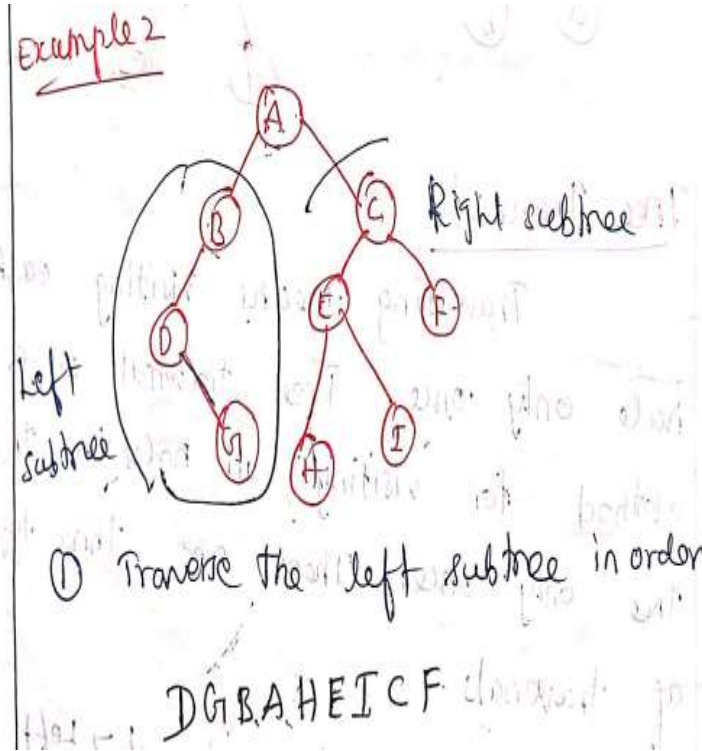 Example 2
A
B
C
Right subtree
D
E
F
Left
subtree
G
H
I
① Traverse the left subtree in order
DGBAHEICF